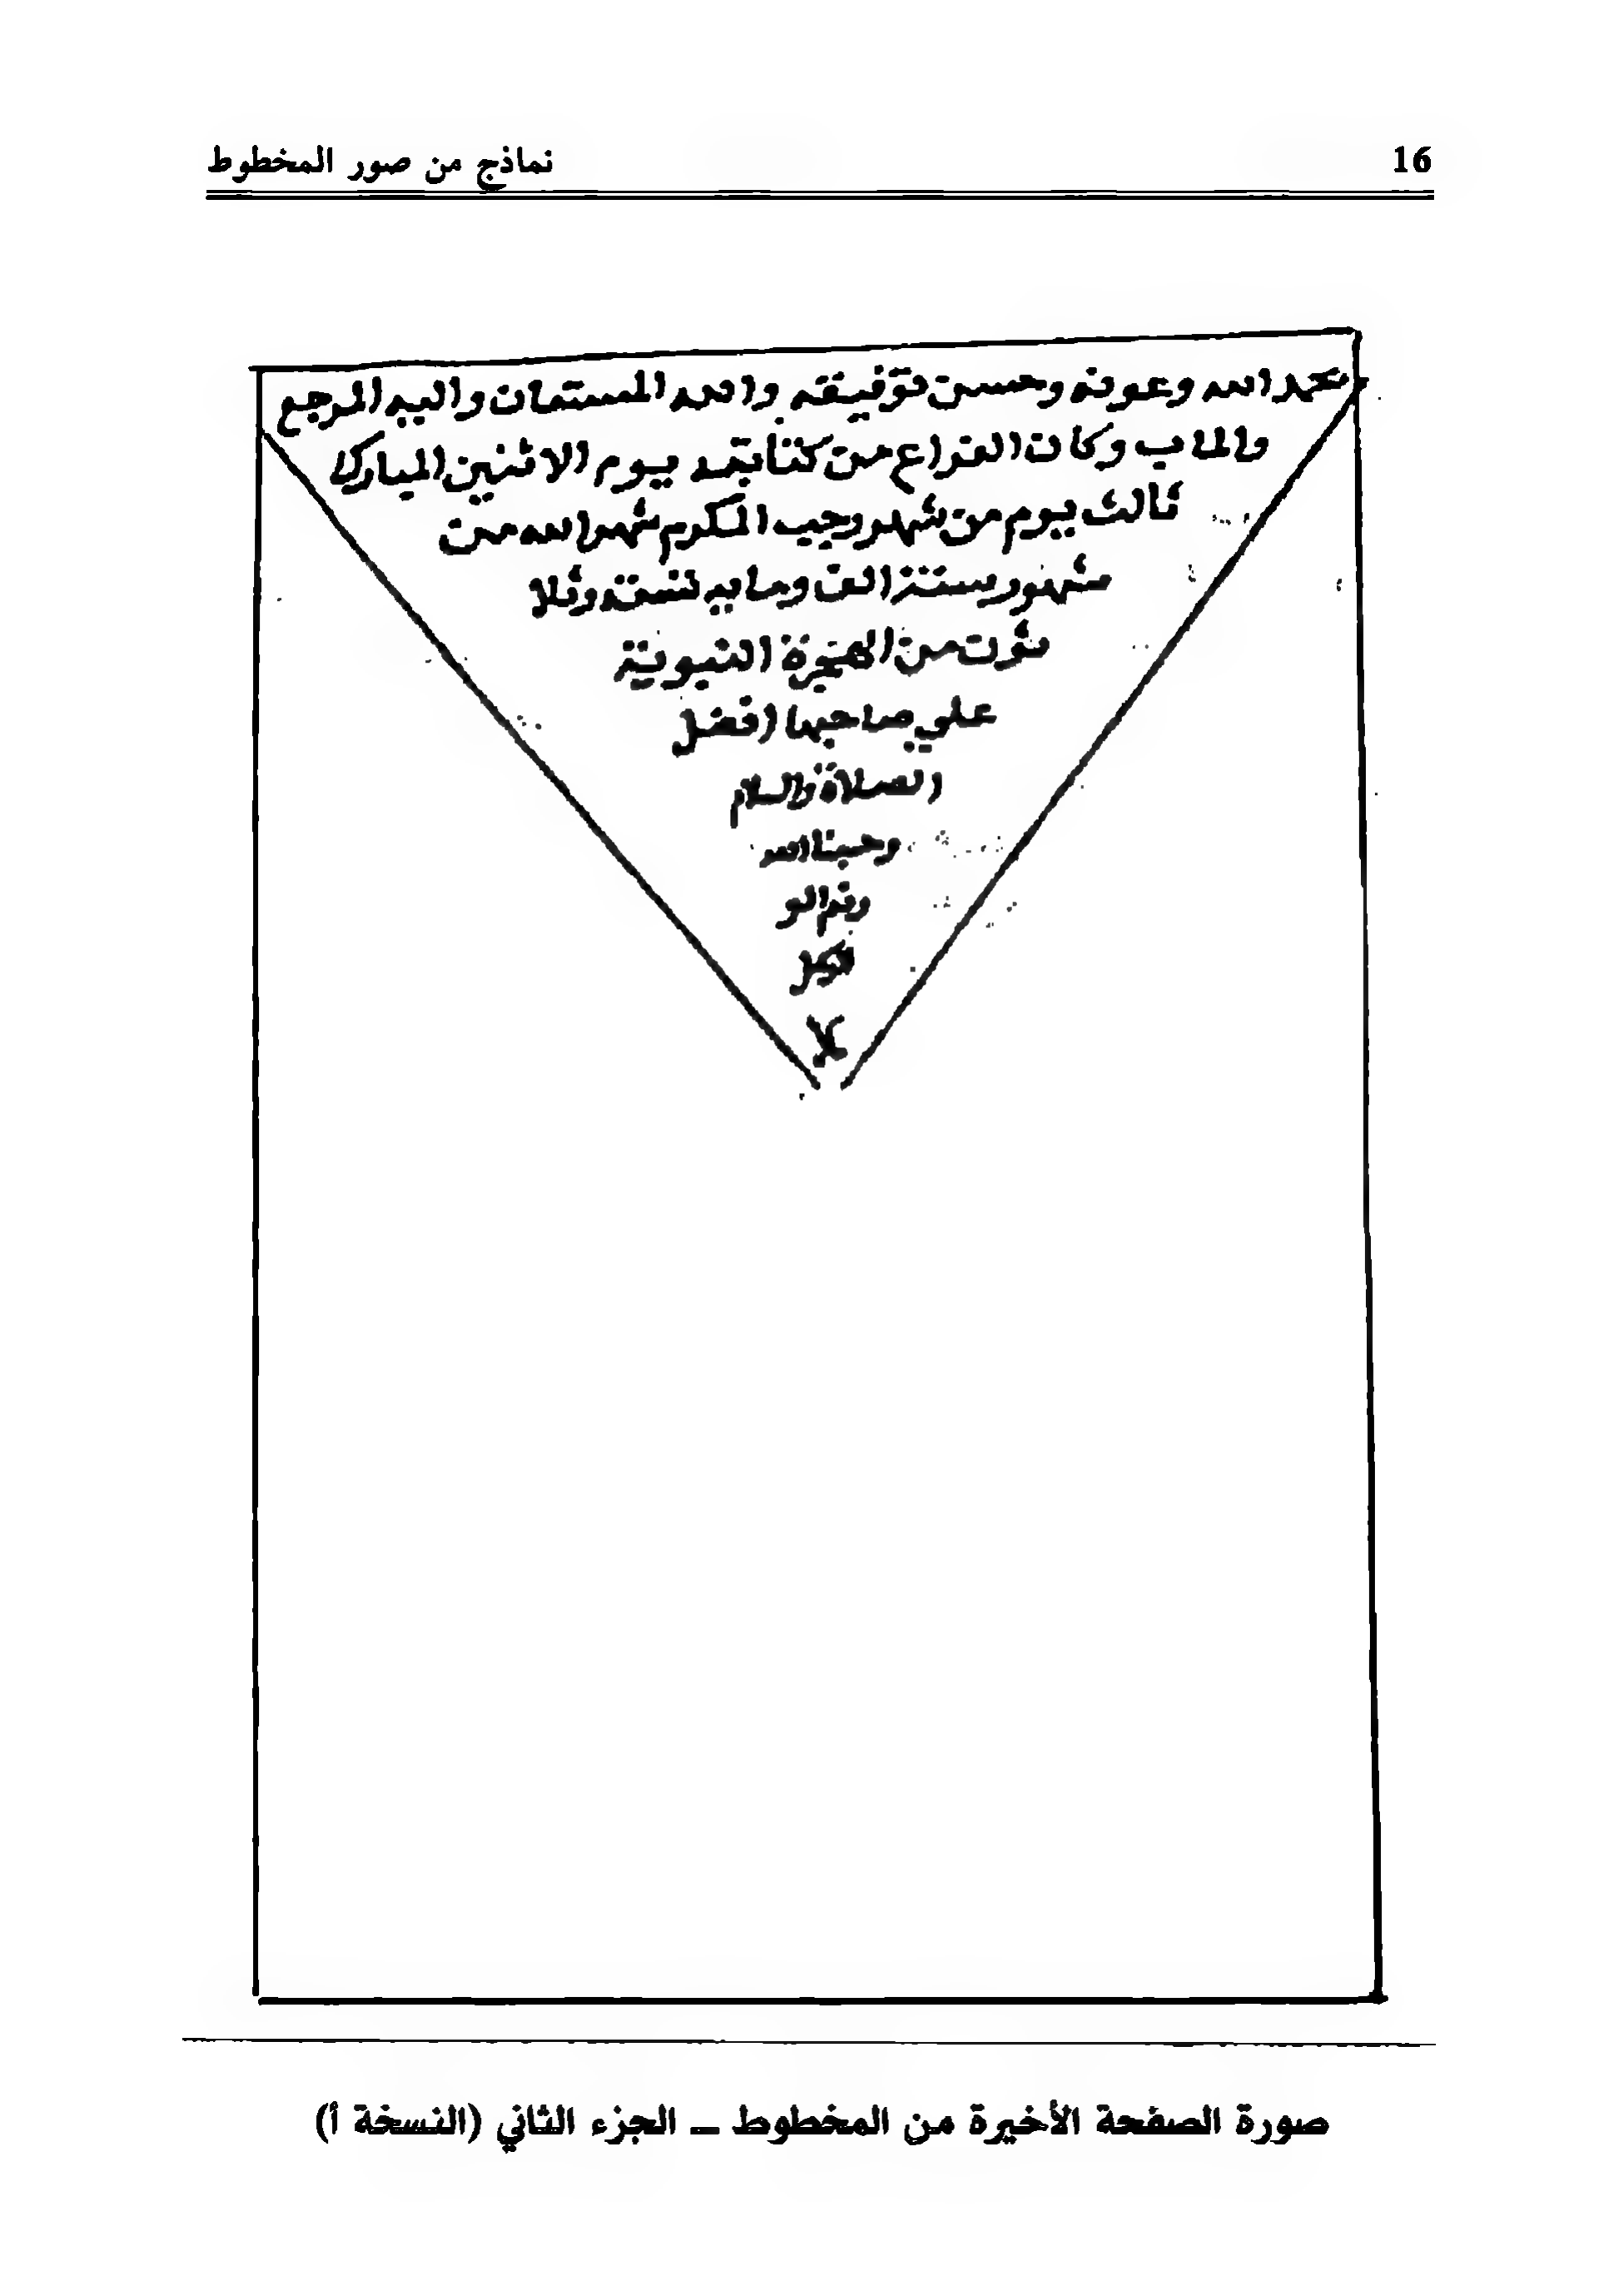 16
نماذج من صور المخطوط
بحمد الله وعونه وحسن توفيقه والله المستعان واليه المرجع
والماب وكان الفراغ من كتابته يوم الاثنين المبارك
ثالث يوم من شهر رجب المكرم شهر الله من
شهور سنة الف ومايه وثلا
ثون من الهجرة النبوية
علي صاحبها افضل
الصلاة والسلام
وحسبنا الله
ونعم الو
كيل
صورة الصفحة الأخيرة من المخطوط ــ الجزء الثاني (النسخة أ)